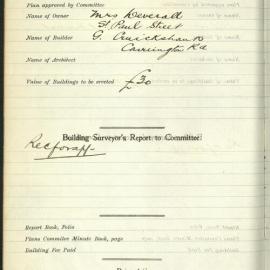 Plan approved by Committee
Name of Owner Mrs Deverall
St Paul Street
Name of Builder G. Cruickshank
Carrington Rd
Name of Architect
Value of Buildings to be erected £30
Building Surveyor's Report to Committee
Rec for app
Report Book, Folio
Plans Committee Minute Book, page
Building Fee Paid